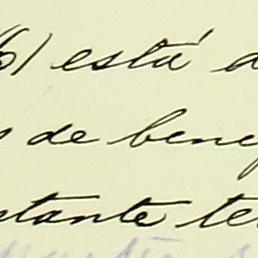 6) está d
s de bene
stante te